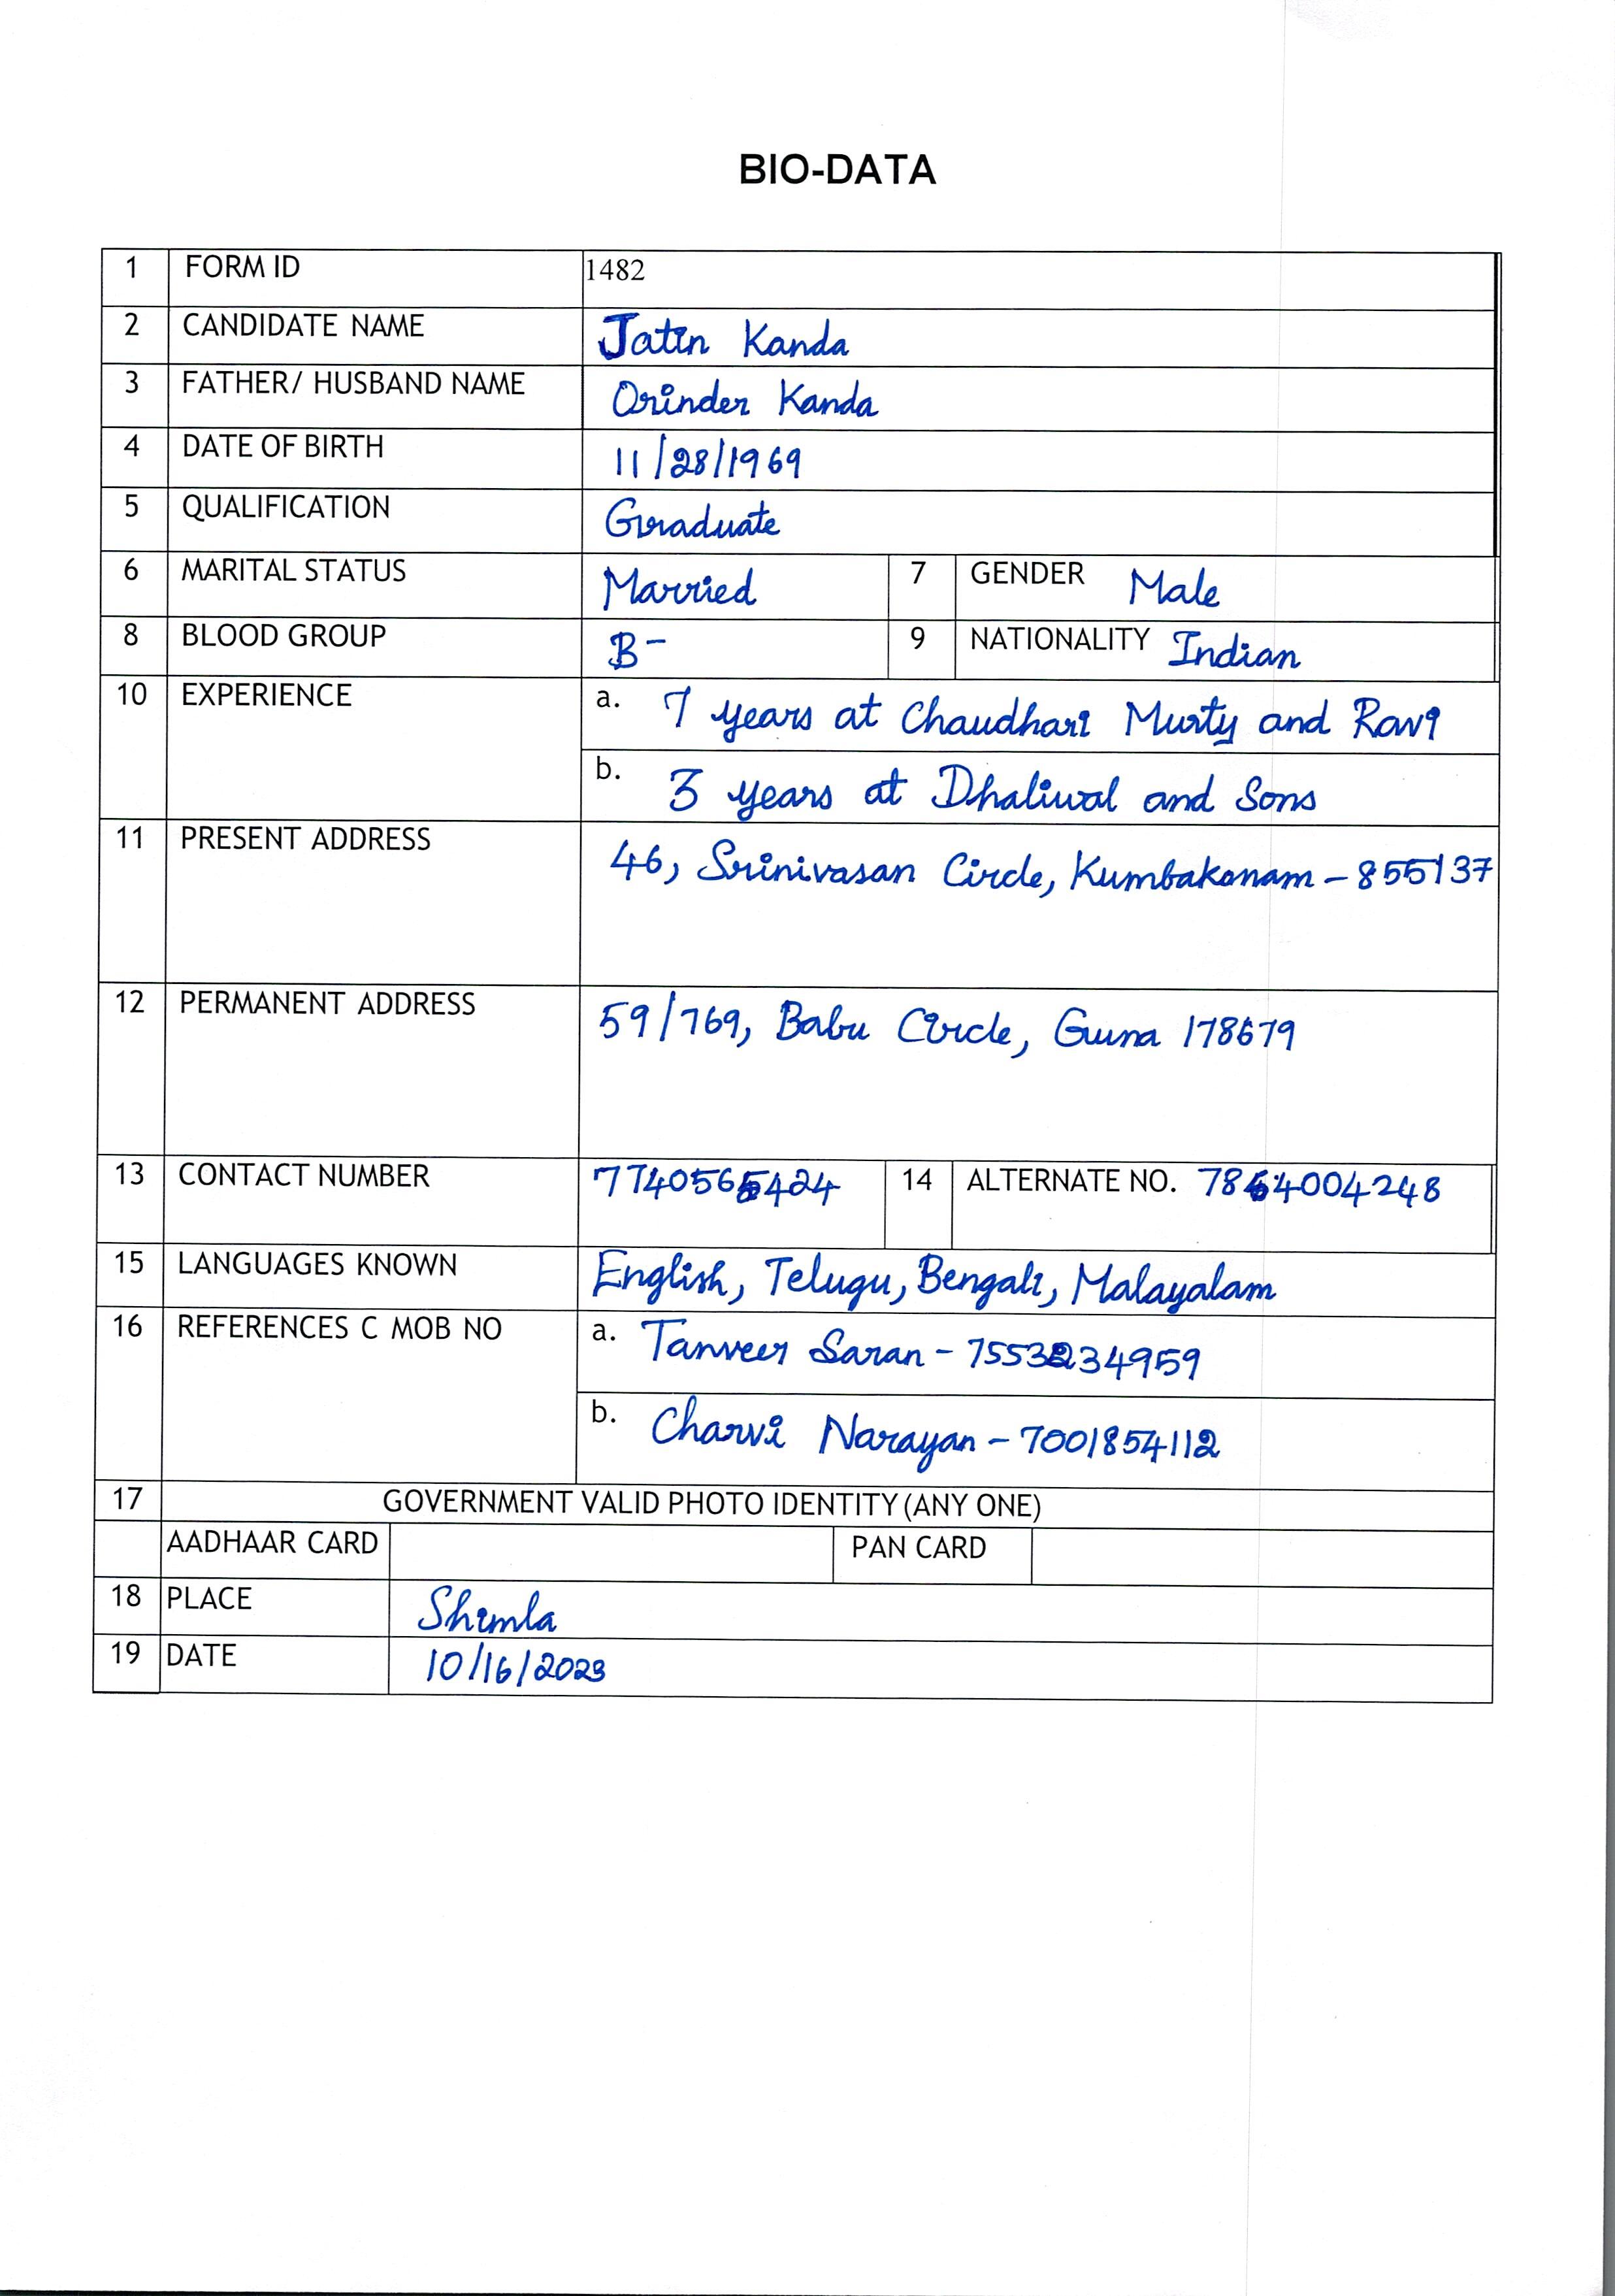 BIO-DATA
1 FORM ID 1482
2 CANDIDATE NAME Jatin Kanda
3 FATHER/ HUSBAND NAME Orinder Kanda
4 DATE OF BIRTH 11/28/1969
5 QUALIFICATION Graduate
6 MARITAL STATUS Married 7 GENDER Male
8 BLOOD GROUP B- 9 NATIONALITY Indian
10 EXPERIENCE a. 7 years at Chaudhari Murty and Ravi
b. 3 years at Dhaliwal and Sons
11 PRESENT ADDRESS 46, Srinivasan Circle, Kumbakonam - 855137
12 PERMANENT ADDRESS 59/769, Babu Circle, Guna 178679
13 CONTACT NUMBER 14 ALTERNATE NO.
15 LANGUAGES KNOWN English, Telugu, Bengali, Malayalam
16 REFERENCES C MOB NO a. Tanveer Saran -
b. Charvi Narayan - 7001854112
17 GOVERNMENT VALID PHOTO IDENTITY (ANY ONE)
AADHAAR CARD PAN CARD
18 PLACE Shimla
19 DATE 10/16/2023